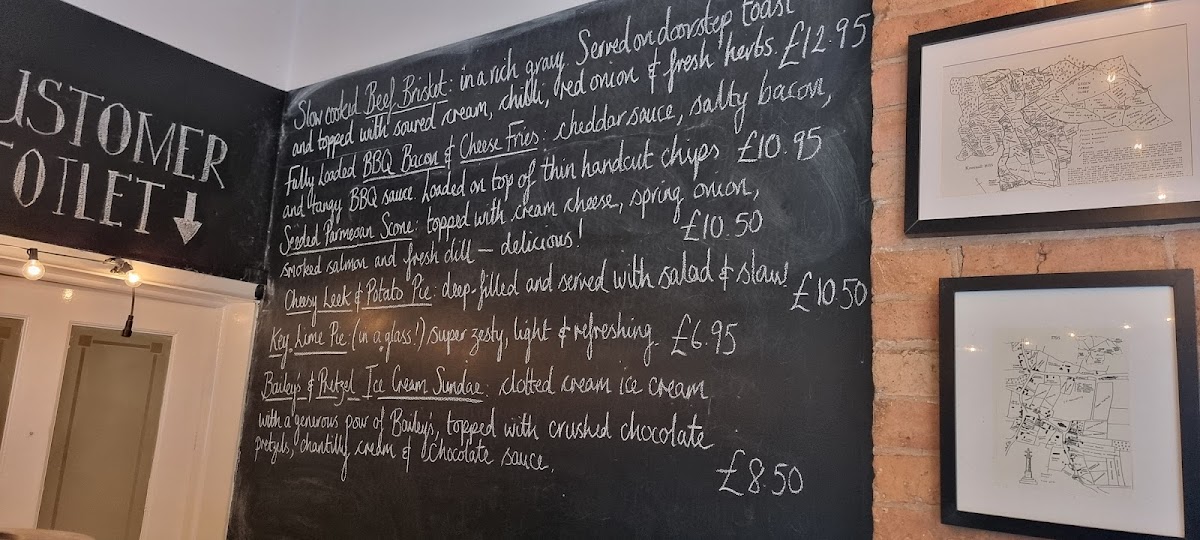 CUSTOMER
TOILET ↓
Slow cooked Beef Brisket: in a rich gravy. Served on doorstep toast
and topped with soured cream, chilli, red onion & fresh herbs. £12.95
Fully Loaded BBQ Bacon & Cheese Fries: cheddar sauce, salty bacon,
and tangy BBQ sauce. Loaded on top of thin handcut chips £10.95
Seeded Parmesan Scone: topped with cream cheese, spring onion,
smoked salmon and fresh dill – delicious! £10.50
Cheesy Leek & Potato Pie: deep-filled and served with salad & slaw! £10.50
Key Lime Pie: (in a glass!) super zesty, light & refreshing. £6.95
Bailey's & Pretzel Ice Cream Sundae: clotted cream ice cream
with a generous pour of Bailey's, topped with crushed chocolate
pretzels, chantilly cream & chocolate sauce.
£8.50